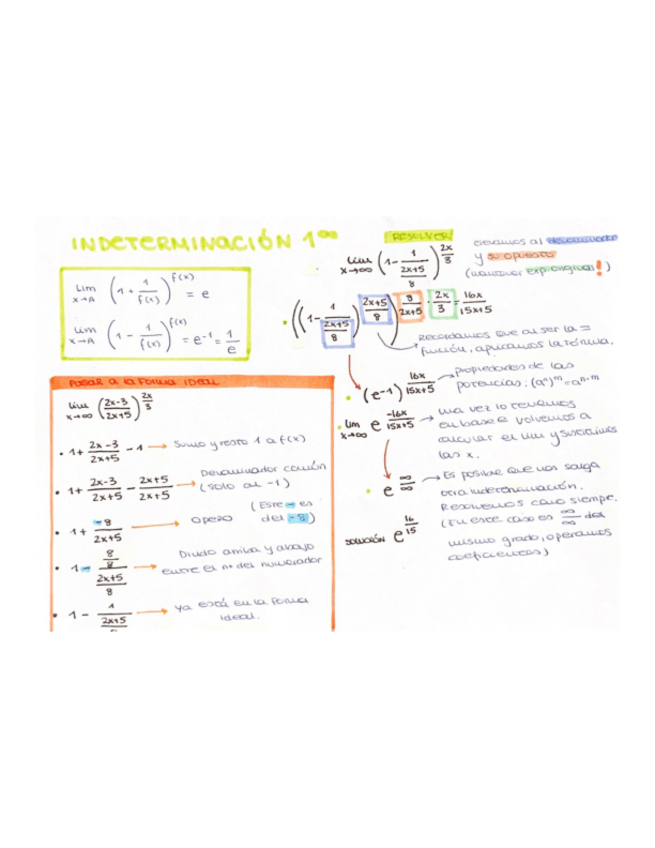 INDETERMINACIÓN 1^∞
Lim x→A (1 + 1/f(x))^f(x) = e
Lim x→A (1 - 1/f(x))^f(x) = e^-1 = 1/e
Pasar a la forma ideal
Lim x→∞ ((2x-3)/(2x+5))^(2x/3)
• 1 + (2x-3)/(2x+5) - 1 → Sumo y resto 1 a f(x)
• 1 + (2x-3)/(2x+5) - (2x+5)/(2x+5) → Denominador común
(solo al -1)
• 1 + -8/(2x+5) → opero (Este - es
del -8)
• 1 - (8/8)/((2x+5)/8) → Divido arriba y abajo
entre el nº del numerador
• 1 - 1/((2x+5)/8) → ya está en la forma
ideal.
RESOLVER
Lim x→∞ (1 - 1/((2x+5)/8))^(2x/3)
elevamos al denominador
y su opuesto
(mantener exp. original!)
• ((1 - 1/((2x+5)/8))^((2x+5)/8))^(8/(2x+5) · 2x/3) = 16x/(15x+5)
Recordamos que al ser la =
función, aplicamos la fórmula.
• (e^-1)^(16x/(15x+5)) → Propiedades de las
potencias: (aⁿ)^m = a^(n·m)
• Lim x→∞ e^(-16x/(15x+5)) → una vez lo tenemos
en base e volvemos a
calcular el lim y sustituimos
las x.
• e^(∞/∞) → Es posible que nos salga
otra indeterminación.
Resolvemos como siempre.
(En este caso es ∞/∞ del
mismo grado, operamos
coeficientes)
SOLUCIÓN e^(16/15)